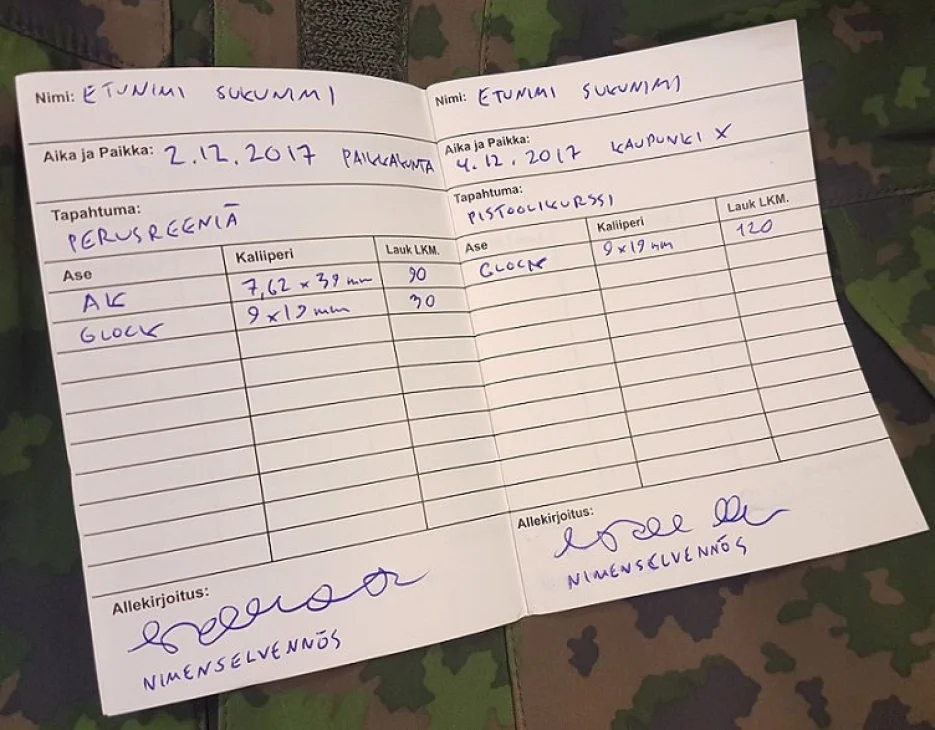 Nimi: ETUNIMI SUKUNIMI
Aika ja Paikka: 2.12.2017 PAIKKAKUNTA
Tapahtuma:
PERUSREENIÄ
Ase Kaliiperi Lauk LKM.
AK 7,62 x 39 mm 90
GLOCK 9x19 mm 30
Allekirjoitus:
NIMENSELVENNÖS
Nimi: ETUNIMI SUKUNIMI
Aika ja Paikka:
4.12.2017 KAUPUNKI X
Tapahtuma:
PISTOOLIKURSSI
Ase Kaliiperi Lauk LKM.
GLOCK 9x19 mm 120
Allekirjoitus:
NIMENSELVENNÖS